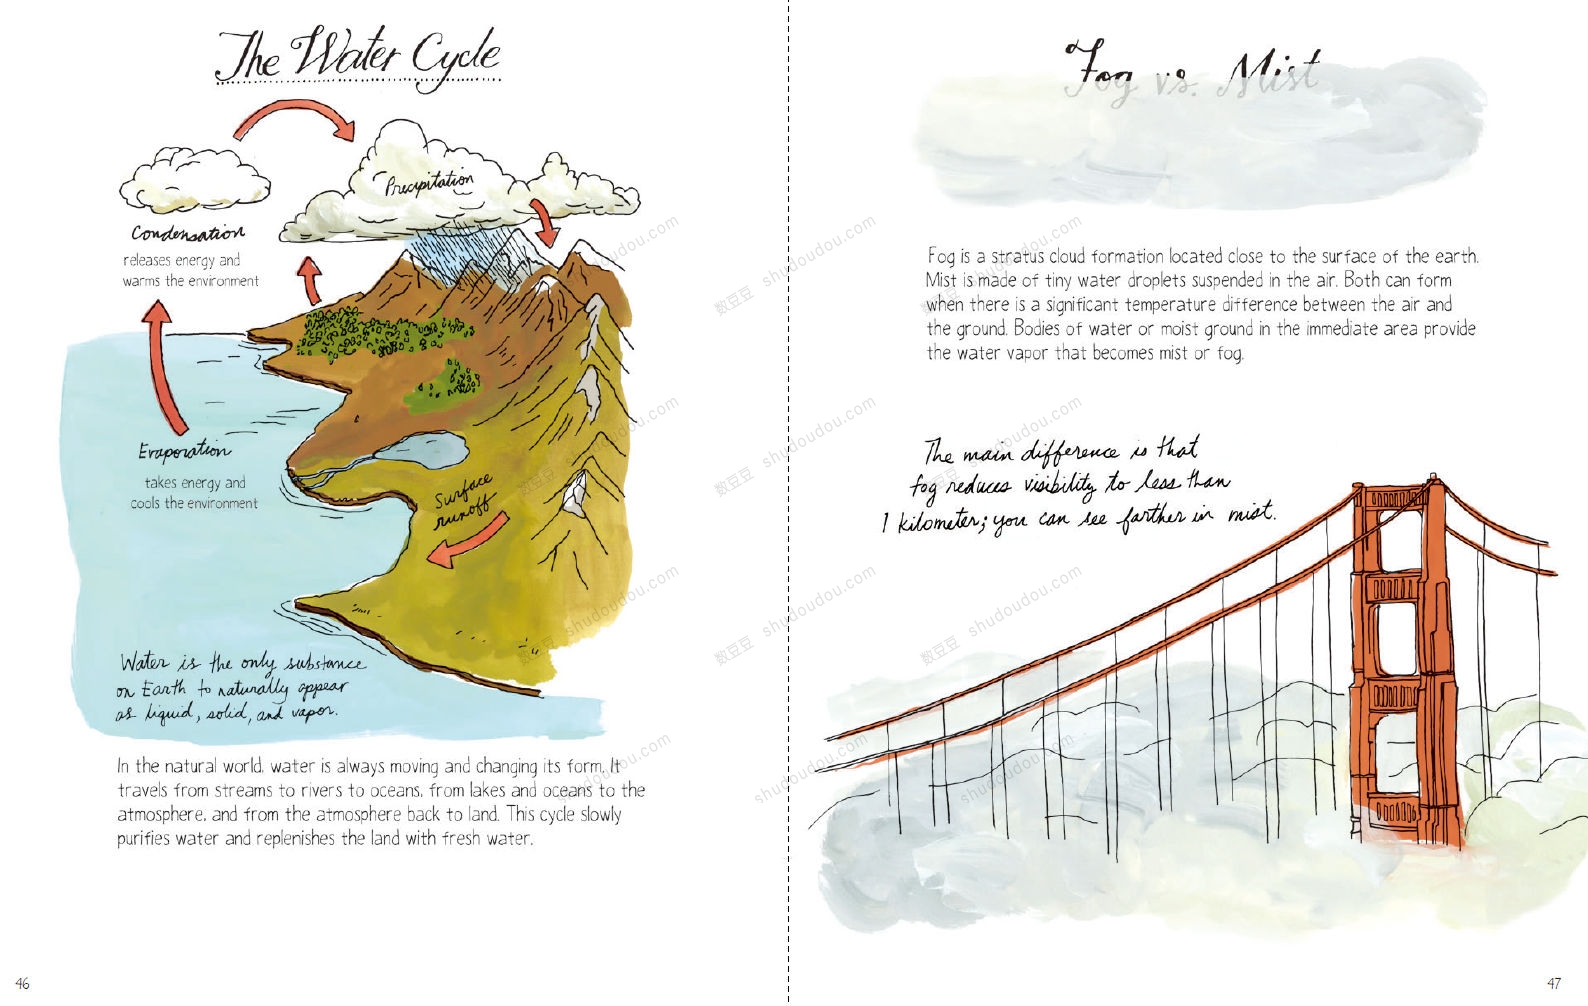 The Water Cycle
Precipitation
Condensation
releases energy and
warms the environment
Evaporation
takes energy and
cools the environment
Surface
runoff
Water is the only substance
on Earth to naturally appear
as liquid, solid, and vapor.
In the natural world, water is always moving and changing its form. It
travels from streams to rivers to oceans, from lakes and oceans to the
atmosphere, and from the atmosphere back to land. This cycle slowly
purifies water and replenishes the land with fresh water.
46
Fog vs. Mist
Fog is a stratus cloud formation located close to the surface of the earth.
Mist is made of tiny water droplets suspended in the air. Both can form
when there is a significant temperature difference between the air and
the ground. Bodies of water or moist ground in the immediate area provide
the water vapor that becomes mist or fog.
The main difference is that
fog reduces visibility to less than
1 kilometer; you can see farther in mist.
47
数豆豆 shudoudou.com
数豆豆 shudoudou.com
数豆豆 shudoudou.com
数豆豆 shudoudou.com
数豆豆 shudoudou.com
数豆豆 shudoudou.com
数豆豆 shudoudou.com
数豆豆 shudoudou.com
数豆豆 shudoudou.com
shudoudou.com
shudoudou.com
shudoudou.com